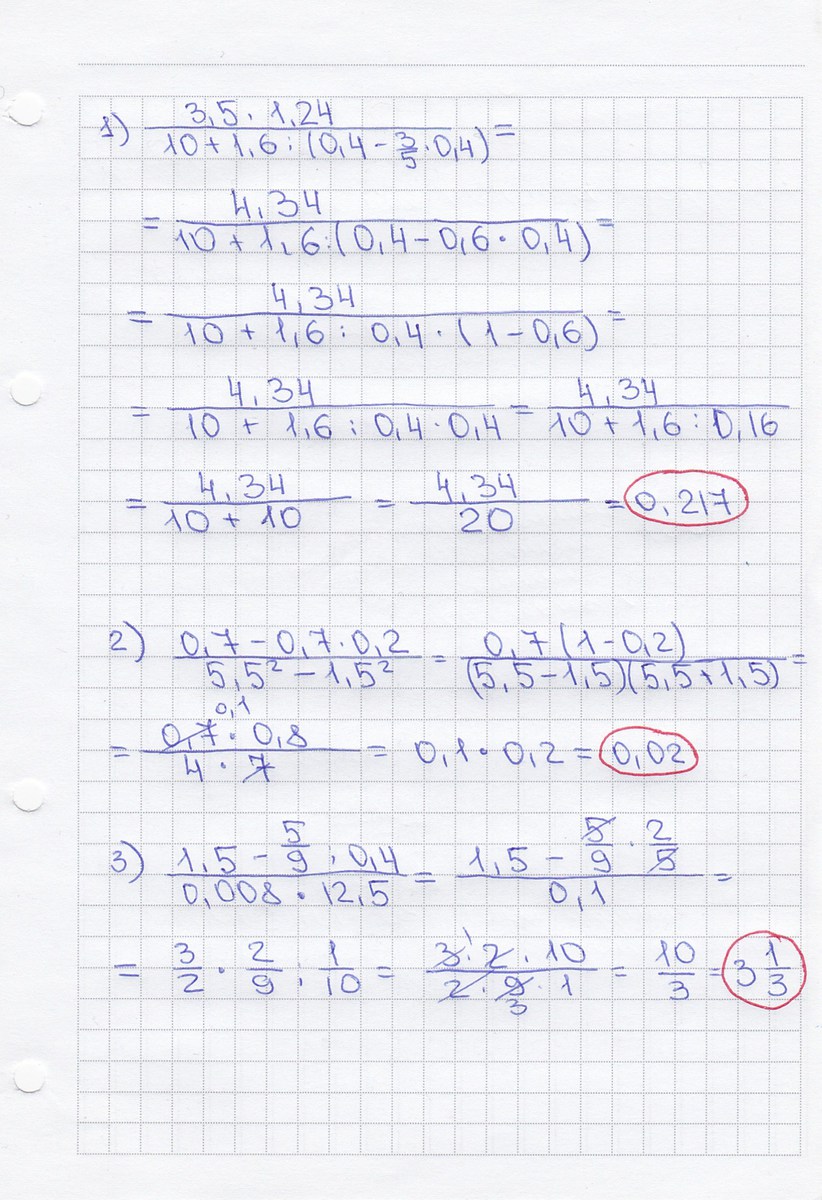 1) 3,5 · 1,24 / 10 + 1,6 : (0,4 - 3/5 · 0,4) =
= 4,34 / 10 + 1,6 : (0,4 - 0,6 · 0,4) =
= 4,34 / 10 + 1,6 : 0,4 · (1 - 0,6) =
= 4,34 / 10 + 1,6 : 0,4 · 0,4 = 4,34 / 10 + 1,6 : 0,16
= 4,34 / 10 + 10 = 4,34 / 20 = 0,217
2) 0,7 - 0,7 · 0,2 / 5,5² - 1,5² = 0,7 (1 - 0,2) / (5,5 - 1,5)(5,5 + 1,5) =
0,1
= 0,7 · 0,8 / 4 · 7 = 0,1 · 0,2 = 0,02
3) 1,5 - 5/9 · 0,4 / 0,008 · 12,5 = 1,5 - 5/9 · 2/5 / 0,1 =
= 3/2 · 2/9 : 1/10 = 3 1 · 2 · 10 / 2 · 9 3 · 1 = 10/3 = 3 1/3